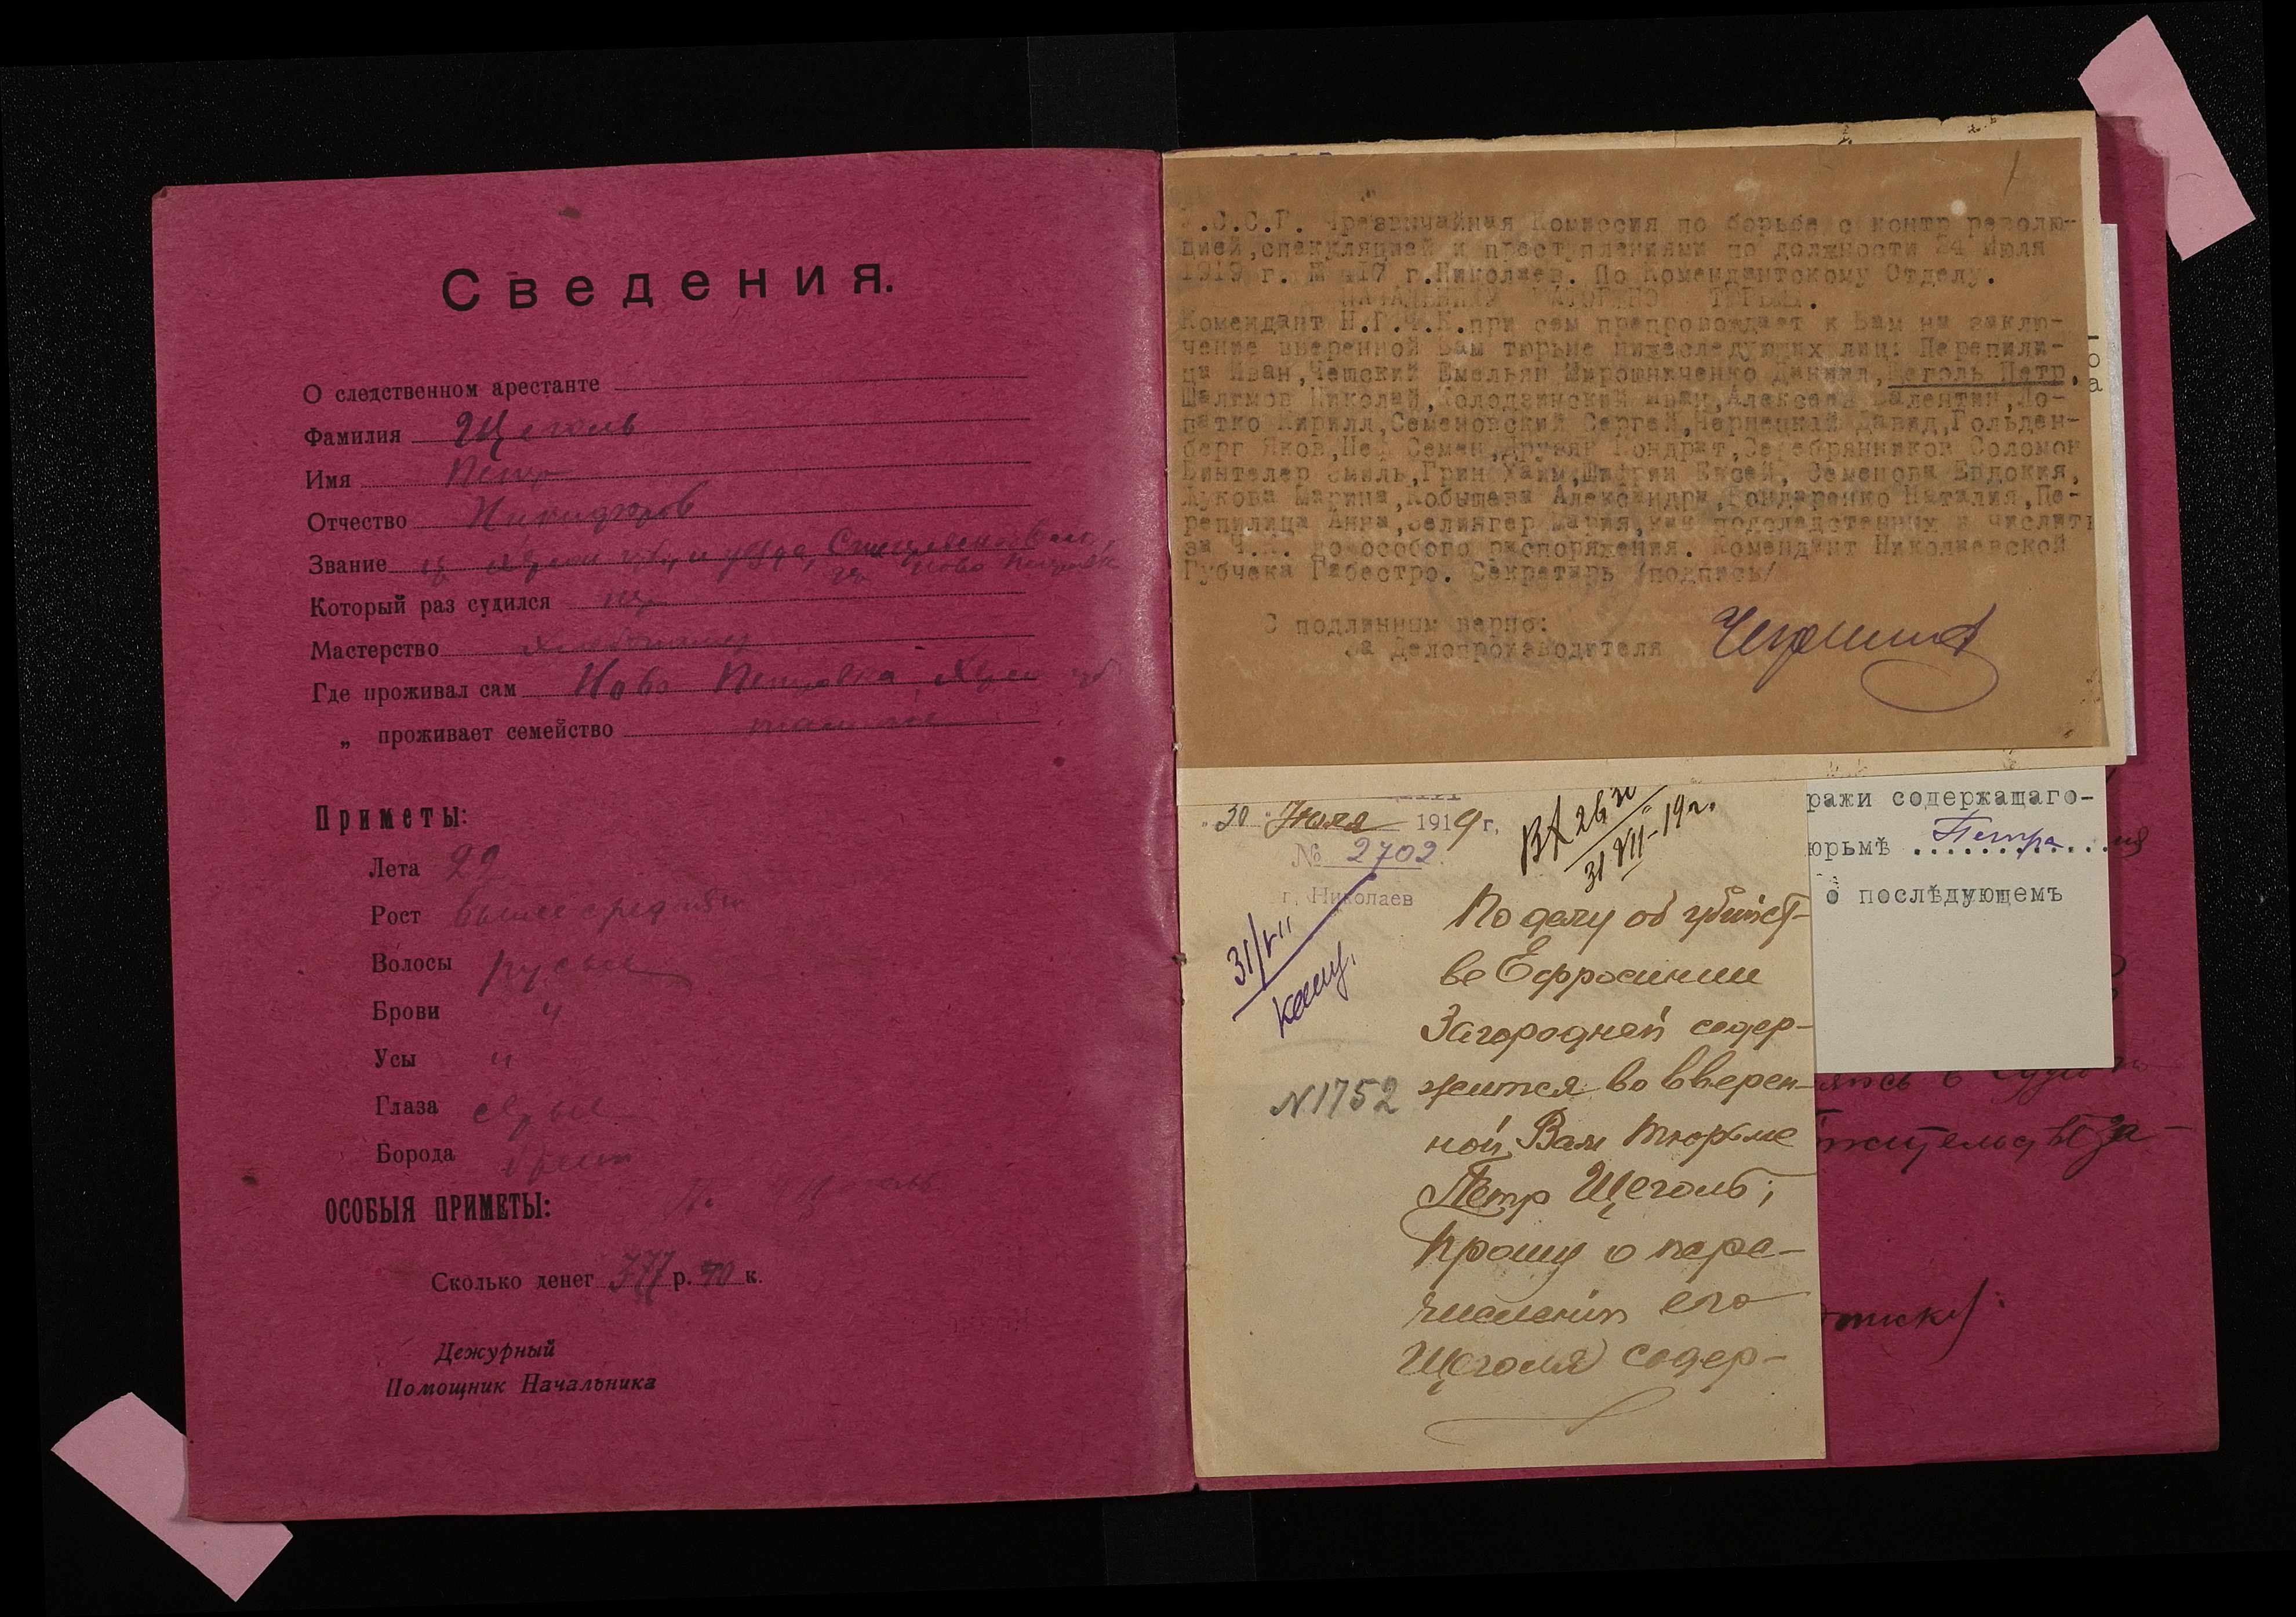 Сведения.
О следственном арестанте
Фамилия Щеголь
Имя Петр
Отчество Никифоров
Звание из Херсон губ, и уезда,
Ново Петровка
Который раз судился
Мастерство
Где проживал сам Ново Петровка, Херс губ
„ проживает семейство там же
Приметы:
Лета 22
Рост выше средняго
Волосы русые
Брови "
Усы "
Глаза серые
Борода бреит
ОСОБЫЯ ПРИМЕТЫ:
П. Щеголь
Сколько денег 377 р. 70 к.
Дежурный
Помощник Начальника
.С.С.Г. Чрезвычайная Комиссия по борьбе с контр револю-
цией,спекуляцией и преступлениями по должности 24 Июля
1919 г. № 17 г.Николаев. По Комендантскому Отделу.
НАЧАЛЬНИКУ ТЮРЬМЫ.
Комендант Н.Г.Ч.К.при сем препровождает к Вам на заклю-
чение вверенной Вам тюрьме нижеследующих лиц: Перепили-
ца Иван,Чешский Емельян Мирошниченко Даниил,Щеголь Петр,
Шалимов Николай,Колодзинский Иван,Алексеев Валентин,Ло-
патко Кирилл,Семеновский Сергей,Чернецкий Давид,Гольден-
берг Яков, Семен, Кондрат,Серебрянников Соломон
Винтелер Эмиль,Грин Хаим,Шифрин Евсей, Семенова Евдокия,
Жукова Марина,Кобышева Александра,Бондаренко Наталия,Пе-
репилица Анна,Зелингер Мария,как подследственных и числить
за Ч.К. до особого распоряжения. Комендант Николаевской
Губчека Габестро. Секретарь /подпись/
С подлинным верно:
За Делопроизводителя
"30" Июля 1919 г.
№ 2702.
г. Николаев
31 VII-19 г.
31/VII
канц.
N1752
По делу об убийст-
ве Ефросинии
Загородней содер-
жится во вверен-
ной Вам тюрьме
Петр Щеголь;
прошу о пере-
числении его
Щеголя содер-
ражи содержащаго-
юрьмѣ Петра
о послѣдующемъ